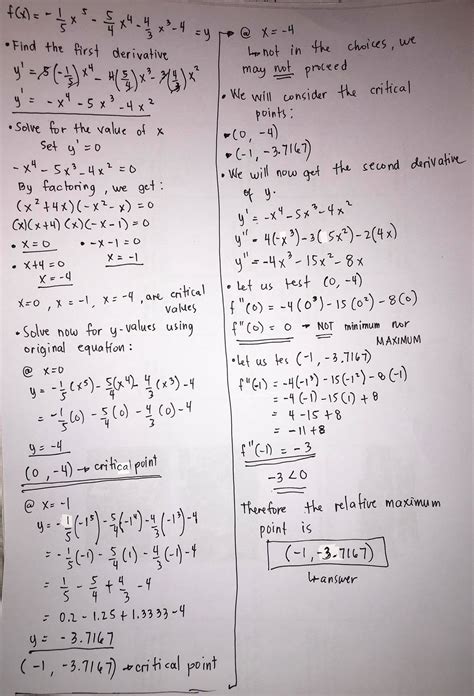 f(x) = -1/5 x⁵ - 5/4 x⁴ - 4/3 x³ - 4 = y
• Find the first derivative
y' = 5(-1/5)x⁴ - 4(5/4)x³ - 3(4/3)x²
y' = -x⁴ - 5x³ - 4x²
• Solve for the value of x
Set y' = 0
-x⁴ - 5x³ - 4x² = 0
By factoring, we get:
(x² + 4x)(-x² - x) = 0
(x)(x+4)(x)(-x-1) = 0
• x = 0 • -x - 1 = 0
• x + 4 = 0 x = -1
x = -4
x=0, x = -1, x = -4, are critical
values
• Solve now for y-values using
original equation:
@ x=0
y = -1/5 (x⁵) - 5/4(x⁴) - 4/3 (x³) - 4
= -1/5 (0) - 5/4 (0) - 4/3 (0) - 4
y = -4
(0, -4) → critical point
@ x = -1
y = -1/5 (-1⁵) - 5/4 (-1⁴) - 4/3 (-1³) - 4
= -1/5 (-1) - 5/4 (1) - 4/3 (-1) - 4
= 1/5 - 5/4 + 4/3 - 4
= 0.2 - 1.25 + 1.3333 - 4
y = -3.7167
(-1, -3.7167) → critical point
@ x = -4
↳ not in the choices, we
may not proceed
• We will consider the critical
points:
→ (0, -4)
→ (-1, -3.7167)
• We will now get the second derivative
of y.
y' = -x⁴ - 5x³ - 4x²
y" = 4(-x³) - 3(5x²) - 2(4x)
y" = -4x³ - 15x² - 8x
• Let us test (0, -4)
f"(0) = -4(0³) - 15(0²) - 8(0)
f"(0) = 0 → NOT minimum nor
MAXIMUM
• Let us tes (-1, -3.7167)
f"(-1) = -4(-1³) - 15(-1²) - 8(-1)
= -4(-1) - 15(1) + 8
= 4 - 15 + 8
= -11 + 8
f"(-1) = -3
-3 < 0
Therefore the relative maximum
point is
(-1, -3.7167)
↳ answer